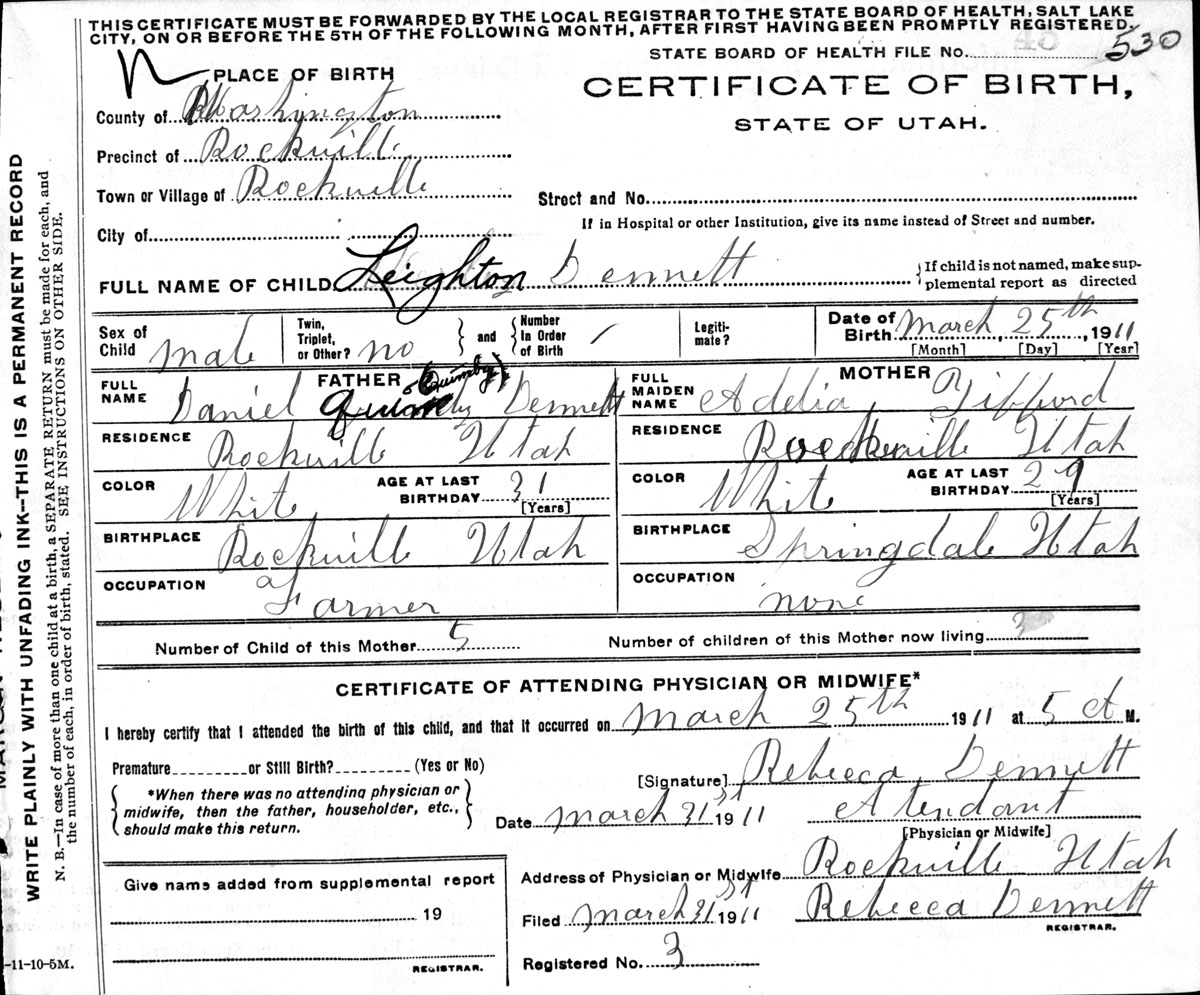 THIS CERTIFICATE MUST BE FORWARDED BY THE LOCAL REGISTRAR TO THE STATE BOARD OF HEALTH, SALT LAKE
CITY, ON OR BEFORE THE 5TH OF THE FOLLOWING MONTH, AFTER FIRST HAVING BEEN PROMPTLY REGISTERED.
STATE BOARD OF HEALTH FILE No. 530
PLACE OF BIRTH
CERTIFICATE OF BIRTH,
STATE OF UTAH.
County of Washington
Precinct of Rockville
Town or Village of Rockville
Street and No.
If in Hospital or other Institution, give its name instead of Street and number.
City of
FULL NAME OF CHILD Leighton Dennett
{If child is not named, make sup-
plemental report as directed
Sex of Child male
Twin, Triplet, or Other? no
} and {
Number In Order of Birth
Legiti-mate?
Date of Birth March 25th, 1911
[Month] [Day] [Year]
FATHER
FULL NAME Daniel (Quimby) Dennett
RESIDENCE Rockville Utah
COLOR White AGE AT LAST BIRTHDAY 31
[Years]
BIRTHPLACE Rockville Utah
OCCUPATION Farmer
MOTHER
FULL MAIDEN NAME Adelia Gifford
RESIDENCE Rockville Utah
COLOR White AGE AT LAST BIRTHDAY 29
[Years]
BIRTHPLACE Springdale Utah
OCCUPATION none
Number of Child of this Mother 5 Number of children of this Mother now living
CERTIFICATE OF ATTENDING PHYSICIAN OR MIDWIFE*
I hereby certify that I attended the birth of this child, and that it occurred on March 25th 1911 at 5 A M.
Premature or Still Birth? (Yes or No)
[Signature] Rebecca Dennett
{ *When there was no attending physician or
midwife, then the father, householder, etc.,
should make this return. }
Date March 31st 1911 Atendant
[Physician or Midwife]
Give name added from supplemental report
19
REGISTRAR.
Address of Physician or Midwife Rockville Utah
Filed March 31st 1911 Rebecca Dennett
REGISTRAR.
Registered No. 3
-11-10-5M.
WRITE PLAINLY WITH UNFADING INK—THIS IS A PERMANENT RECORD
N. B.—In case of more than one child at a birth, a SEPARATE RETURN must be made for each, and
the number of each, in order of birth, stated. SEE INSTRUCTIONS ON OTHER SIDE.